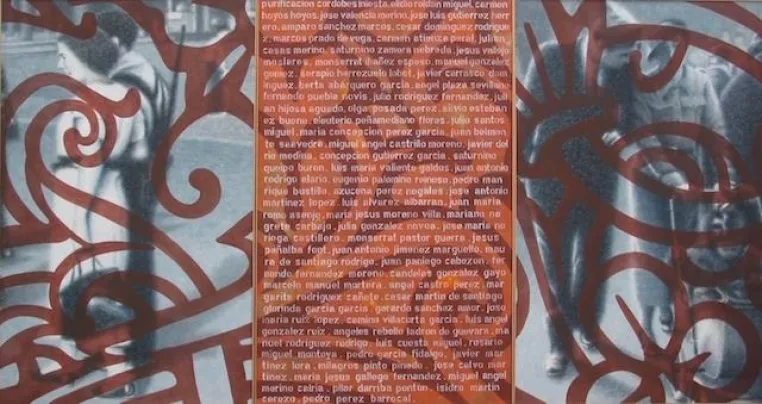 purificacion cordobes iniesta. elicio roldan miguel. carmen
hoyos hoyos. jose valencia merino. jose luis gutierrez herr
ero. amparo sanchez marcos. cesar dominguez rodrigue
z. marcos prado de vega. carmen atienza peral. julian
casas merino. saturnino zamora nebreda. jesus vallejo
mosleres. monserrat ibañez esposo. manuel gonzalez
gomez. serapio herrezuelo lobet. javier carrasco dom
inguez. berta abarquero garcia. angel plaza sevillano
fernando puebla novis. julio rodriguez fernandez. juli
an hijosa aguado. olga posada perez. silvio esteban
ez bueno. eleuterio peñamediano flores. julio santos.
miguel. maria concepcion perez garcia. juan belmon
te saavedra. miguel angel castrillo moreno. javier del
rio medina. concepcion gutierrez garcia. saturnino
queipo buron. luis maria valiente galdos. juan antonio
rodrigo elario. eugenia palomino reinoso. pedro man
rique bustillo. azucena perez nogales. jose antonio
martinez lopez. luis alvarez albarran. juan maria
romo asenjo. maria jesus moreno villa. mariano ne
grete carbajo. julia gonzalez novoa. jose maria no
riega castillero. monserrat pastor guerra. jesus
peñalba font. juan antonio jimenez marguello. mau
ra de santiago rodrigo. juan paniego cabezon. fer
nando fernandez moreno. candelas gonzalez gayo
marcelo manuel martora. angel castro perez. mar
garita rodriguez cañete. cesar martin de santiago
glorinda garcia garcia. gerardo sanchez amor. jose
maria ruiz lopez. camino villacurta garcia. luis angel
gonzalez ruiz. angeles rebollo ladron de guevara. ma
nuel rodriguez rodrigo. luis cuesta miguel. rosario
miguel montoya. pedro garcia fidalgo. javier mar
tinez lora. milagros pinto pinado. jose calvo mar
tinez. maria jesus gallego fernandez. miguel angel
merino calria. pilar darriba ponton. isidro martin
cerezo. pedro perez barrocal.